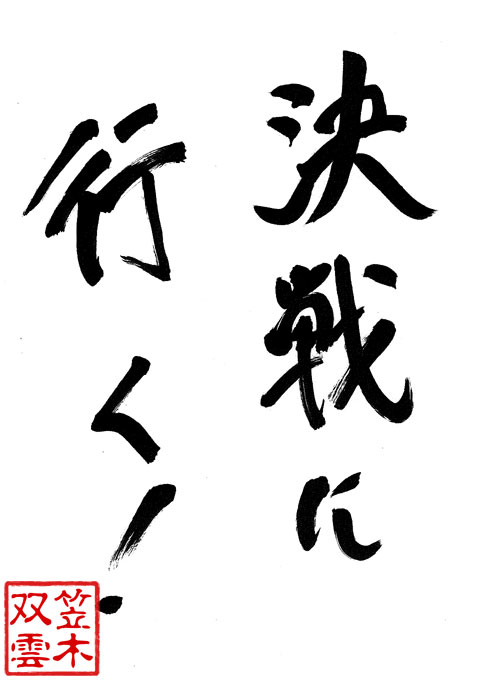 決戦に
行く!
笠木
双雲